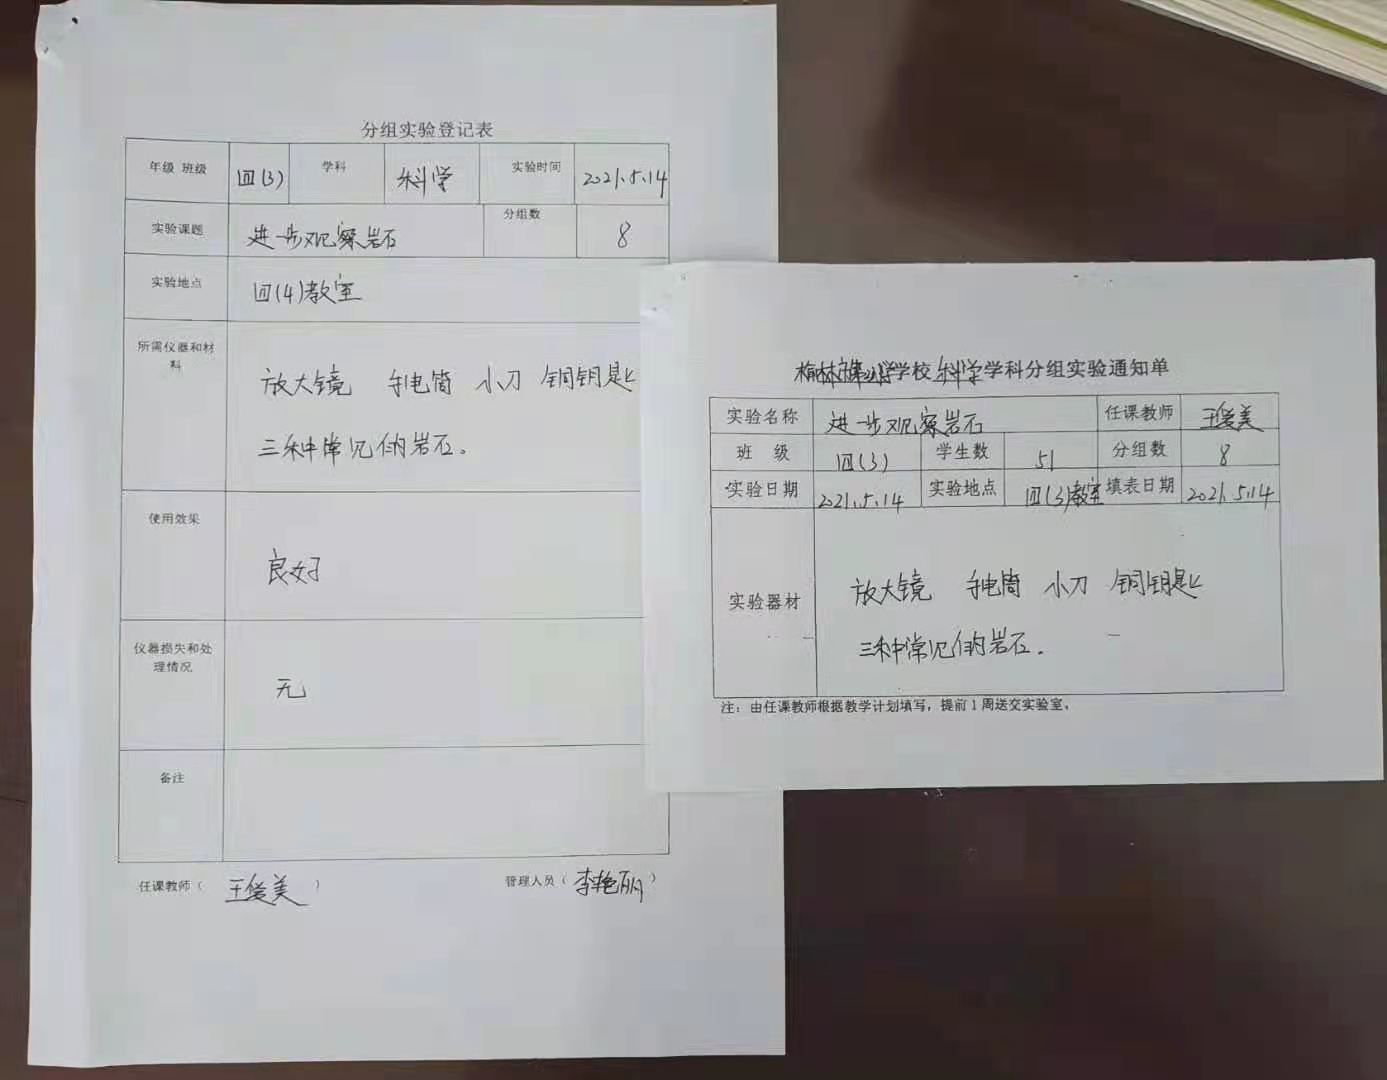 分组实验登记表
年级 班级 四(3) 学科 科学 实验时间 2021.5.14
实验课题 进一步观察岩石 分组数 8
实验地点 四(4)教室
所需仪器和材料 放大镜 手电筒 小刀 铜钥匙
三种常见的岩石。
使用效果 良好
仪器损失和处理情况 无
备注
任课教师( 王俊美 ) 管理人员( 李艳丽 )
学校科学学科分组实验通知单
实验名称 进一步观察岩石 任课教师 王俊美
班 级 四(3) 学生数 51 分组数 8
实验日期 2021.5.14 实验地点 四(3)教室 填表日期 2021.5.14
实验器材 放大镜 手电筒 小刀 铜钥匙
三种常见的岩石.
注:由任课教师根据教学计划填写,提前1周送交实验室。